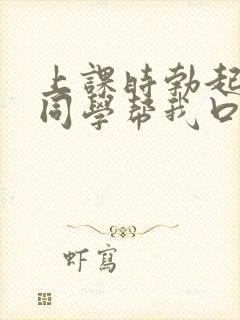 上課時勃起
同學幫我口
虾寫